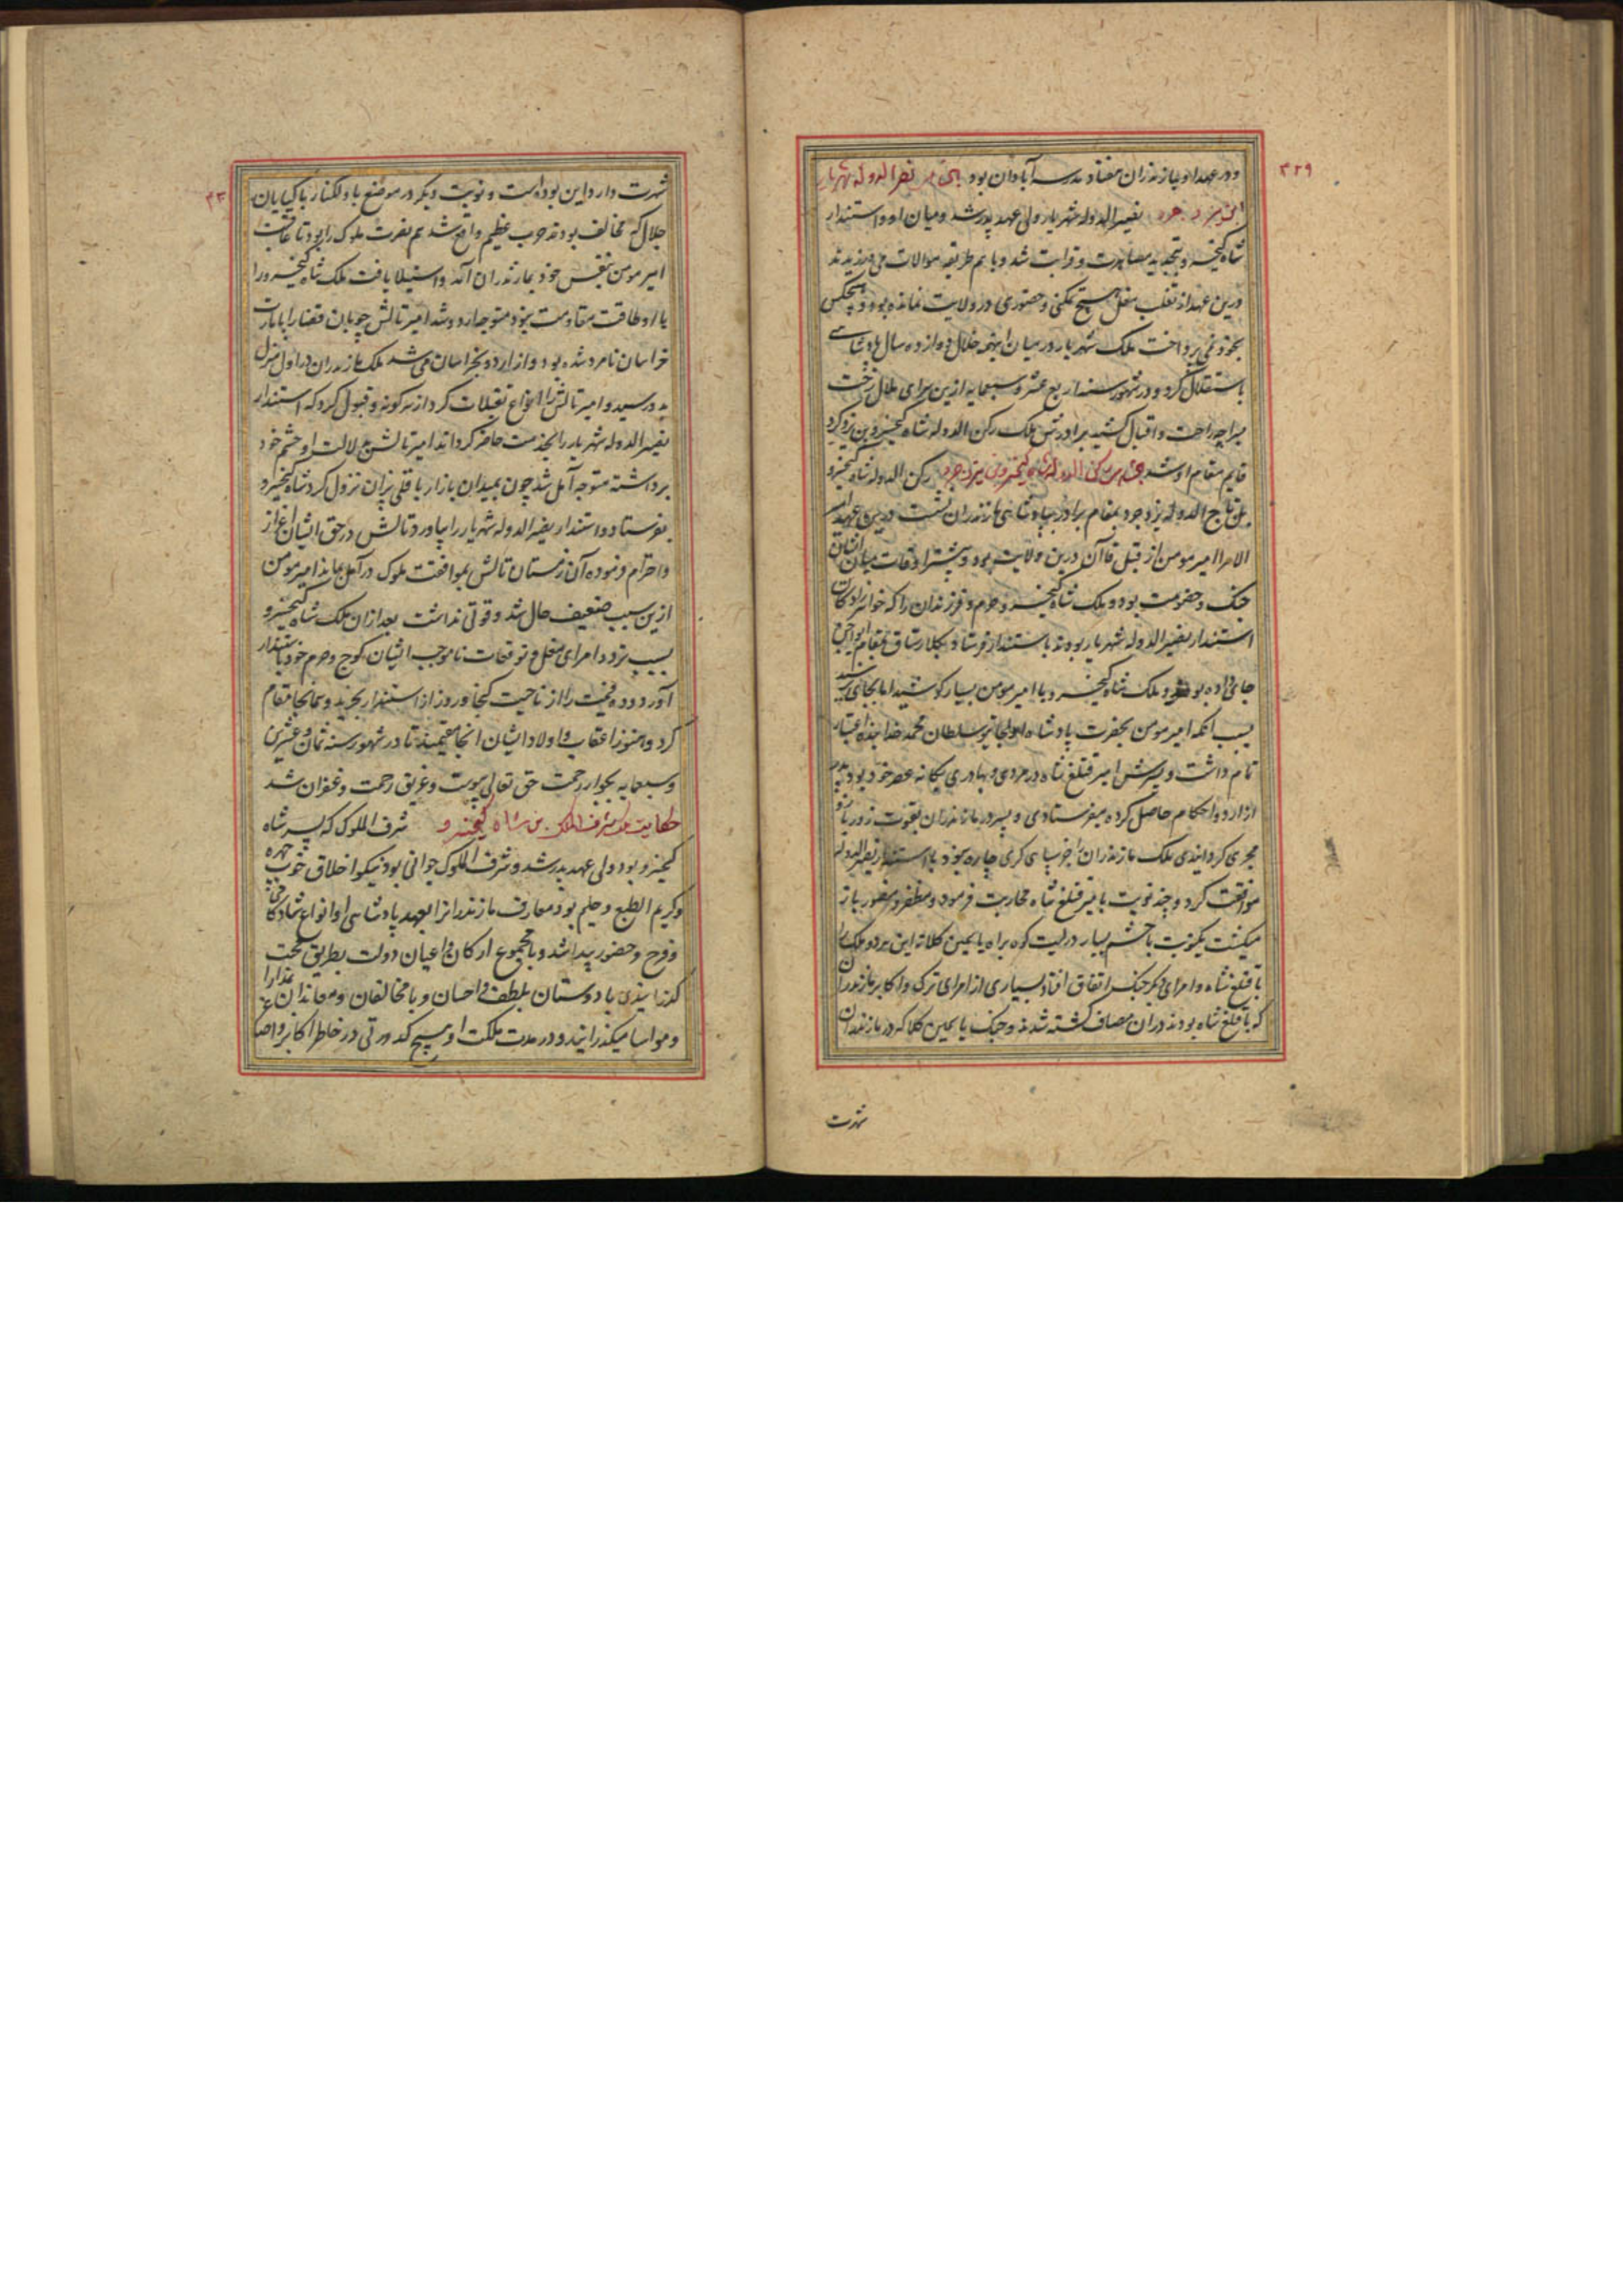 ۳۲۹
و در عهد او بمازندران هفتاد مدرسه آبادان بود نصیر الدوله شهریار
بن یزدجرد نصیر الدوله شهریار ولی عهد پدر شد و میان او و استندار
شاه کیخسرو بتجدید مصاهرت و قرابت شد و با هم طریقه موالات می ورزیدند
درین عهد از تغلب مغل هیچ تمکنی و حضوری در ولایت نمانده بود و هیچکس
بخود نمی پرداخت ملک شهریار در میان اینهمه خلال دوازده سال پادشاهی
باستقلال کرد و در شهور سنه اربع عشر و سبعمایه ازین سرای ملال رخت
بسراچه راحت و اقبال کشید برادرش ملک رکن الدوله شاه کیخسرو بن یزدجرد
قایم مقام او شد رکن الدوله شاه کیخسرو بن یزدجرد رکن الدوله شاه کیخسرو
بن تاج الدوله یزدجرد بمقام برادر بپادشاهی مازندران نشست درین عهد امیر
الامرا امیر مومن از قبل قاآن درین ولایت بود و بیشتر اوقات میان ایشان
جنک و خصومت بود و ملک شاه کیخسرو حرم و فرزندان را که خواهرزادکان
استندار نصیر الدوله شهریار بودند باستندار فرستاد و بکلارستاق بمقام
جای داده بود و ملک شاه کیخسرو با امیر مومن بسیار کوشید اما بجای نرسید
بسبب آنکه امیر مومن بحضرت پادشاه اولجایتو سلطان محمد خدابنده اعتبار
تمام داشت و پسرش امیر قتلغ شاه در مردی و بهادری یکانه عصر خود بود پدر
از اردو احکام حاصل کرده میفرستادی و پسر در مازندران بقوت زور بازو
مجری کردانیدی ملک مازندران چاره نبود با استندار نصیر الدوله
موافقت کرد و چند نوبت با میر قتلغ شاه محاربت فرمود و مظفر و منصور باز
میکشت یکنوبت با حشم بسیار در لیت کوه براه یاسمین کلاته این هر دو ملک را
با قتلغ شاه و امرای دیکر جنک اتفاق افتاد بسیاری از امرای ترک و اکابر مازندران
که با قتلغ شاه بودند دران مصاف کشته شدند و جنک یاسمین کلاته که در مازندران
شهرت
شهرت دارد این بوده است و نوبت دیکر در موضع با کیایان
جلال که مخالف بودند حرب عظیم واقع شد هم نصرت ملوک را بود تا عاقبت
امیر مومن بنفس خود بمازندران آمد و استیلا یافت ملک شاه کیخسرو را
با او طاقت مقاومت نبود متوجه اردو شد امیر تالش چوبان قضا را بامارت
خراسان نامزد شده بود و از اردو بخراسان می شد ملک مازندران در اول منزل
بدو رسید و امیر تالش را انواع تقبلات کرد از هر کونه و قبول کرد که استندار
نصیر الدوله شهریار را بخدمت حاضر کرداند امیر تالش بدلالت او حشم خود
برداشته متوجه آمل شد چون بمیدان نزول کرد شاه کیخسرو
بفرستاد و استندار نصیر الدوله شهریار را بیاورد تالش در حق ایشان اعزاز
و احترام فرموده آن زمستان تالش بموافقت ملوک در آمل بماند امیر مومن
ازین سبب ضعیف حال شد و قوتی نداشت بعد ازان ملک شاه کیخسرو
بسبب تردد امرای مغل و توقعات ناموجب ایشان کوچ و حرم خود باستندار
آورد و ده را از ناحیت از استندار بخرید و همانجا مقام
کرد و هنوز اعقاب و اولاد ایشان آنجا مقیمند تا در شهور سنه ثمان و عشرین
و سبعمایه بجوار رحمت حق تعالی پیوست و غریق رحمت و غفران شد
حکایت ملک شرف الملوک بن شاه کیخسرو شرف الملوک که پسر شاه
کیخسرو بود ولی عهد پدر شد و شرف الملوک جوانی بود نیکو اخلاق خوب چهره
و کریم الطبع و حلیم بود و معارف مازندرانرا بعهد پادشاهی او انواع شادکامی
و فرح و حضور پیدا شد و با مجموع ارکان و اعیان دولت بطریق محبت
کذرانیدی با دوستان بلطف و احسان و با مخالفان و معاندان بمدارا
و مواسا میکذرانید و در مدت ملکت او هیچ کدورتی در خاطر اکابر و